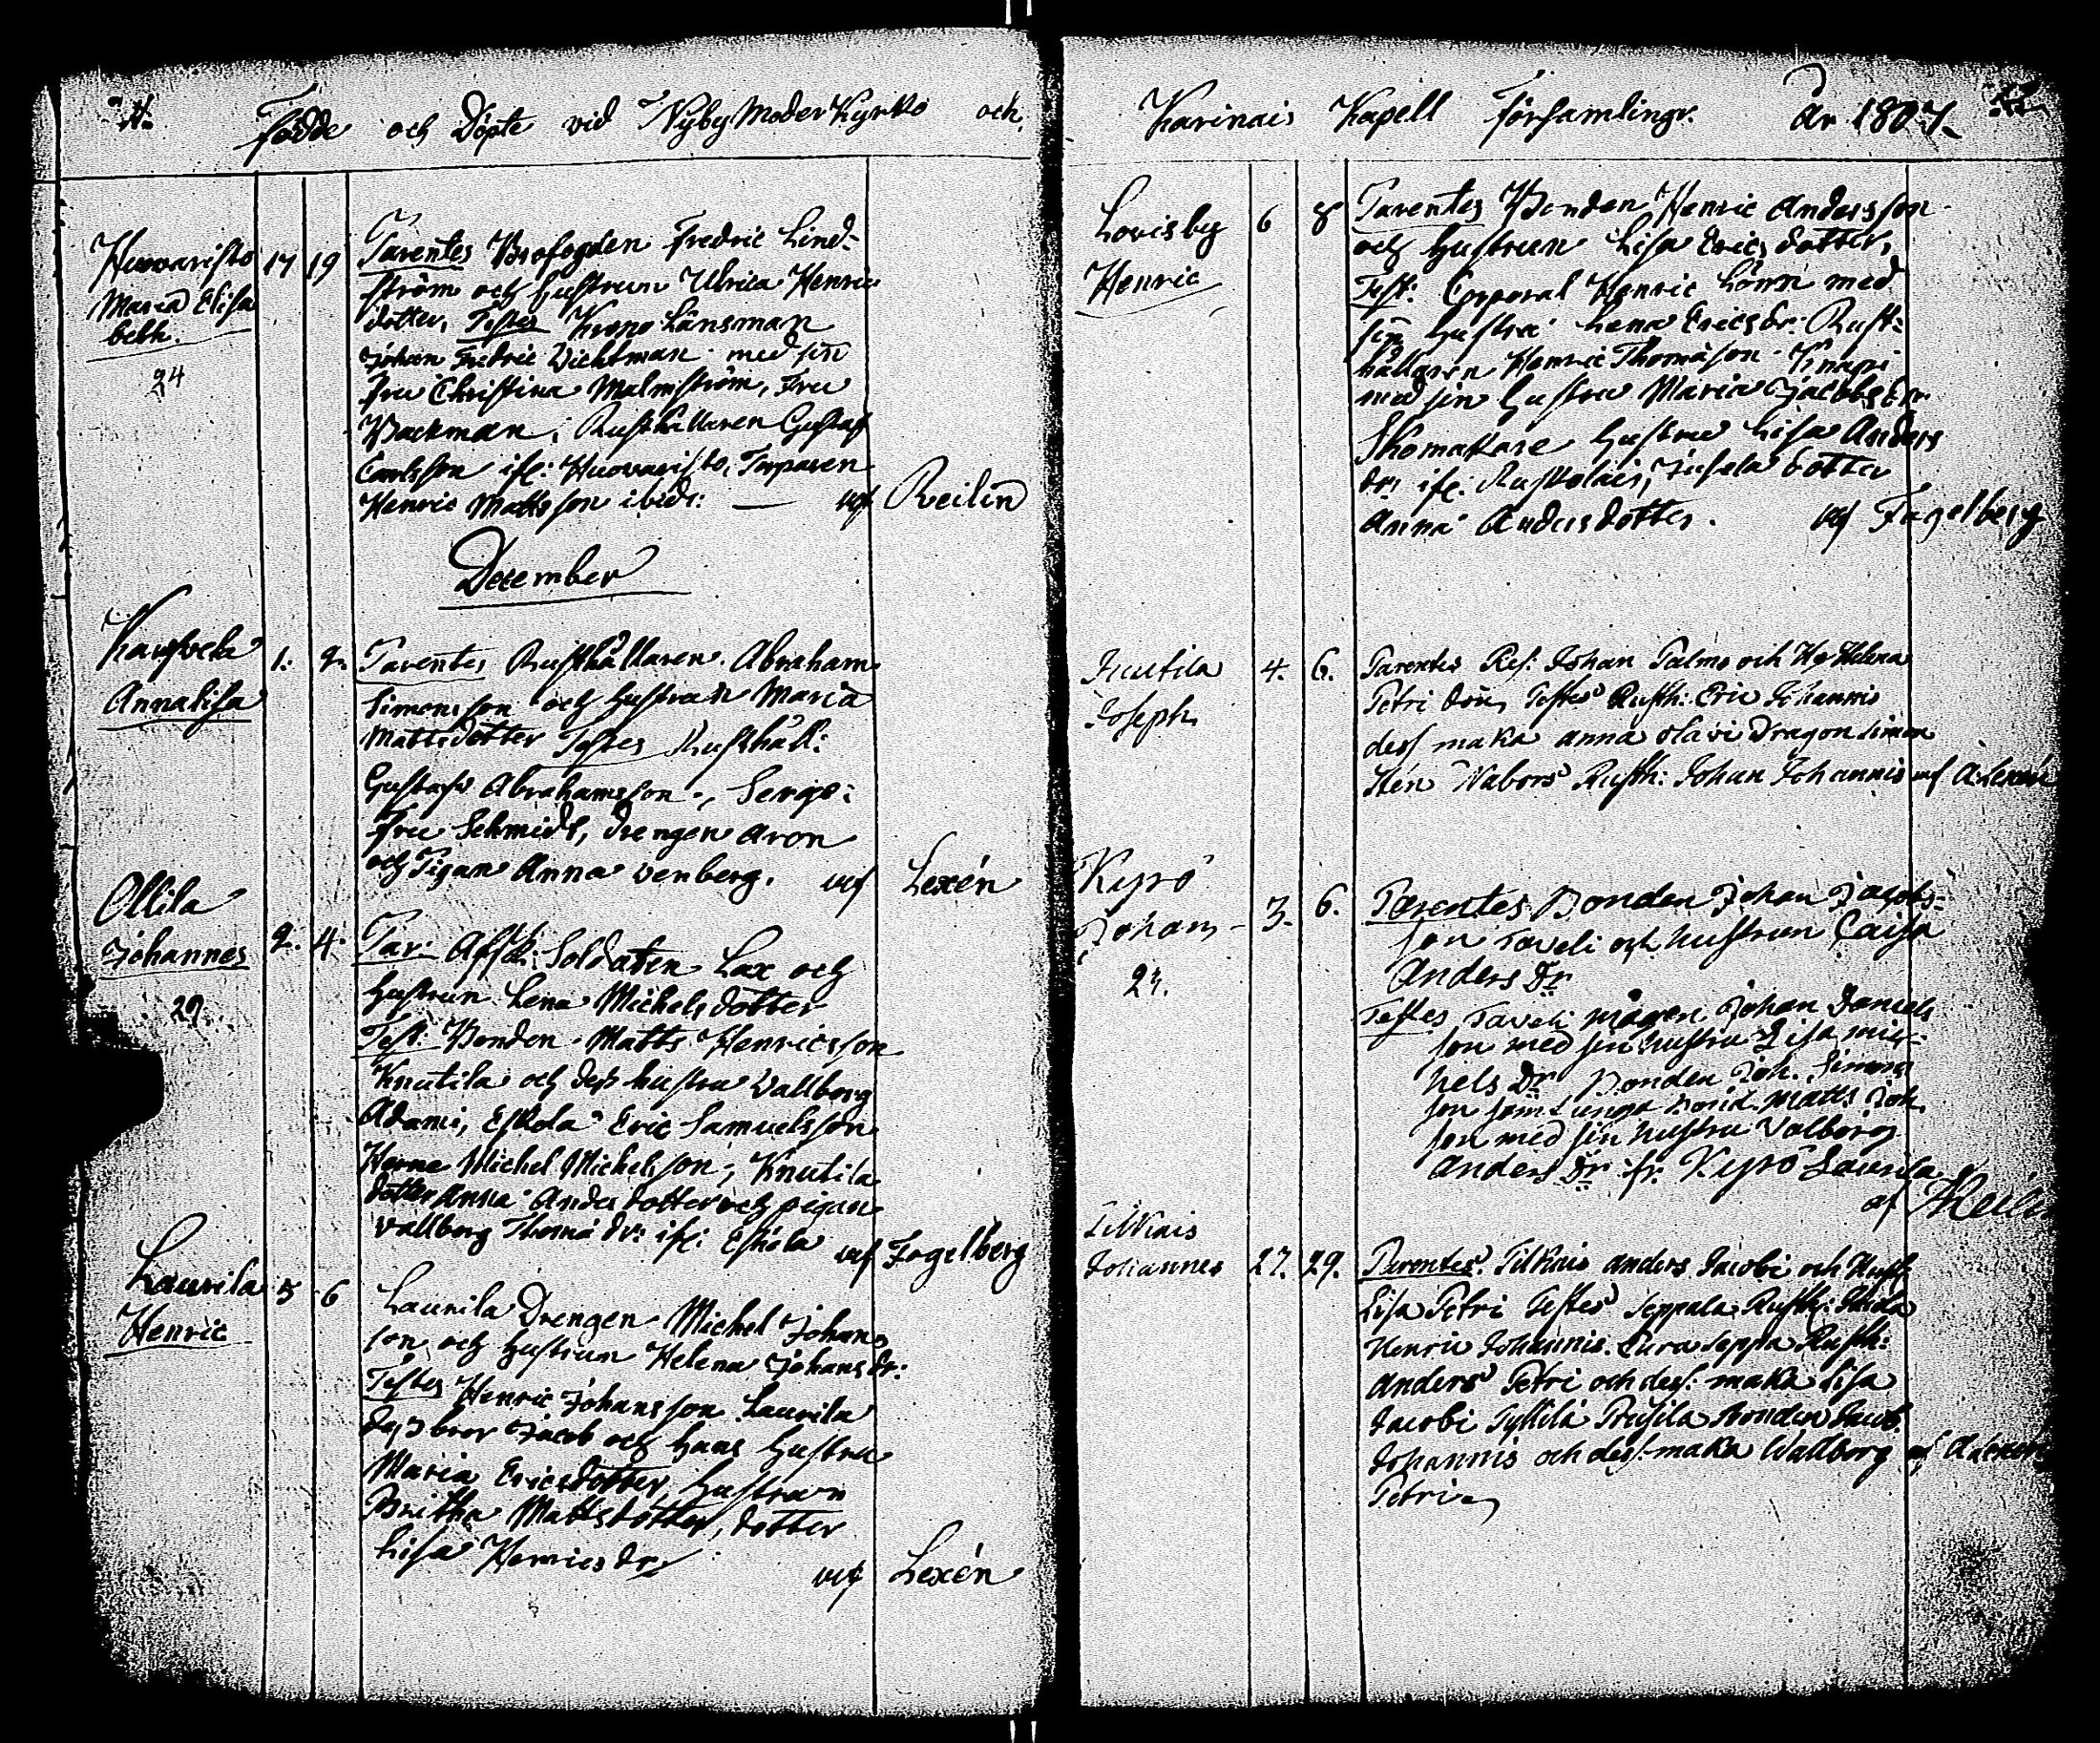 Födde och Döpte vid Nyby Moder Kyrko och
Huovaristo 17 19 Parentes Brofogden Fredric Lind-
Maria Elisa
beth.
24
ström och hustrun Ulrica Henrics
dotter, Testes Krono Länsman
Johan Fredric Wichtman med sin
fru Christina Malmström, Fru
Backman, Rusthållaren Gustaf
Carlsson ifr: Huovaristo, Torparen
Henric Mattsson ibid: Reilin
December
Annalisa 1. 2. Parentes Rusthållaren Abraham
Simonsson och hustrun Maria
Mattsdotter Testes Rusthåll:
Gustaf Abrahamsson,
Fru Schmidt, drengen Aron
och Pigan Anna Wenberg. Lexén
Ollila
Johannes 2. 4. Par: Afsk: Soldaten Lax och
29.
hustrun Lena Michelsdotter
Test: Bonden Matts Henricsson
Knutila och dess hustru Vallborg
Adami, Eskola Eric Samuelsson
Michel Michelsson, Knutila
dotter Anna Andersdotter och pigan
Vallborg Thoma dr: ifr: Eskola Fogelberg
Laurila 5 6 Laurila Drengen Michel Johans
Henric
son och hustrun Helena Johansdr:
Testes Henric Johansson Laurila
dess bror Jacob och hans hustru
Maria Ericsdotter, hustrun
Britha Mattsdotter, dotter
Lisa Henricsdr. Lexén
Karinais Kapell Församlingr. År 1807.
Lovisby 6 8 Parentes Bonden Henric Andersson
Henric
och hustrun Lisa Ericsdotter,
Test: Corporal Henric Lönn med
sin hustru Lena Ericsdr: Rust-
hållaren Henric Thomasson Knapi
med sin hustru Maria Jacobsdr.
Skomakare hustru Lisa Anders
dr: ifr. dotter
Anna Andersdotter. Fagelberg
Knutila 4. 6. Parentes Johan Palmo och Helena
Joseph
Petri Testes Rusth: Eric Johannis
dess maka Anna Olavi Dragon Simon
Sten Nabors Rusth: Johan Johannis A. Lexén
Kyrö
Johan 3. 6. Parentes Bonden Johan Jacobs-
24.
son Taveli och hustrun Caisa
Anders Dr
Testes Taveli mågen Johan Daniels
son med sin hustru Lisa Mic-
hels Dr Bonden Joh. Simons
son Matts Joh.
son med sin hustru Valborg
Anders Dr fr. Kyrö Laurila
af Reilin
Tilkais
Johannes 27. 29. Parentes Tilkais Anders Jacobi och Hust
Lisa Petri Testes Seppälä Rusth:
Henric Johannis. Eura Seppä Rusth:
Anders Petri och dess maka Lisa
Jacobi Prusila Bonden Jacob
Johannis och dess maka Wallborg af A Lexén
Petri